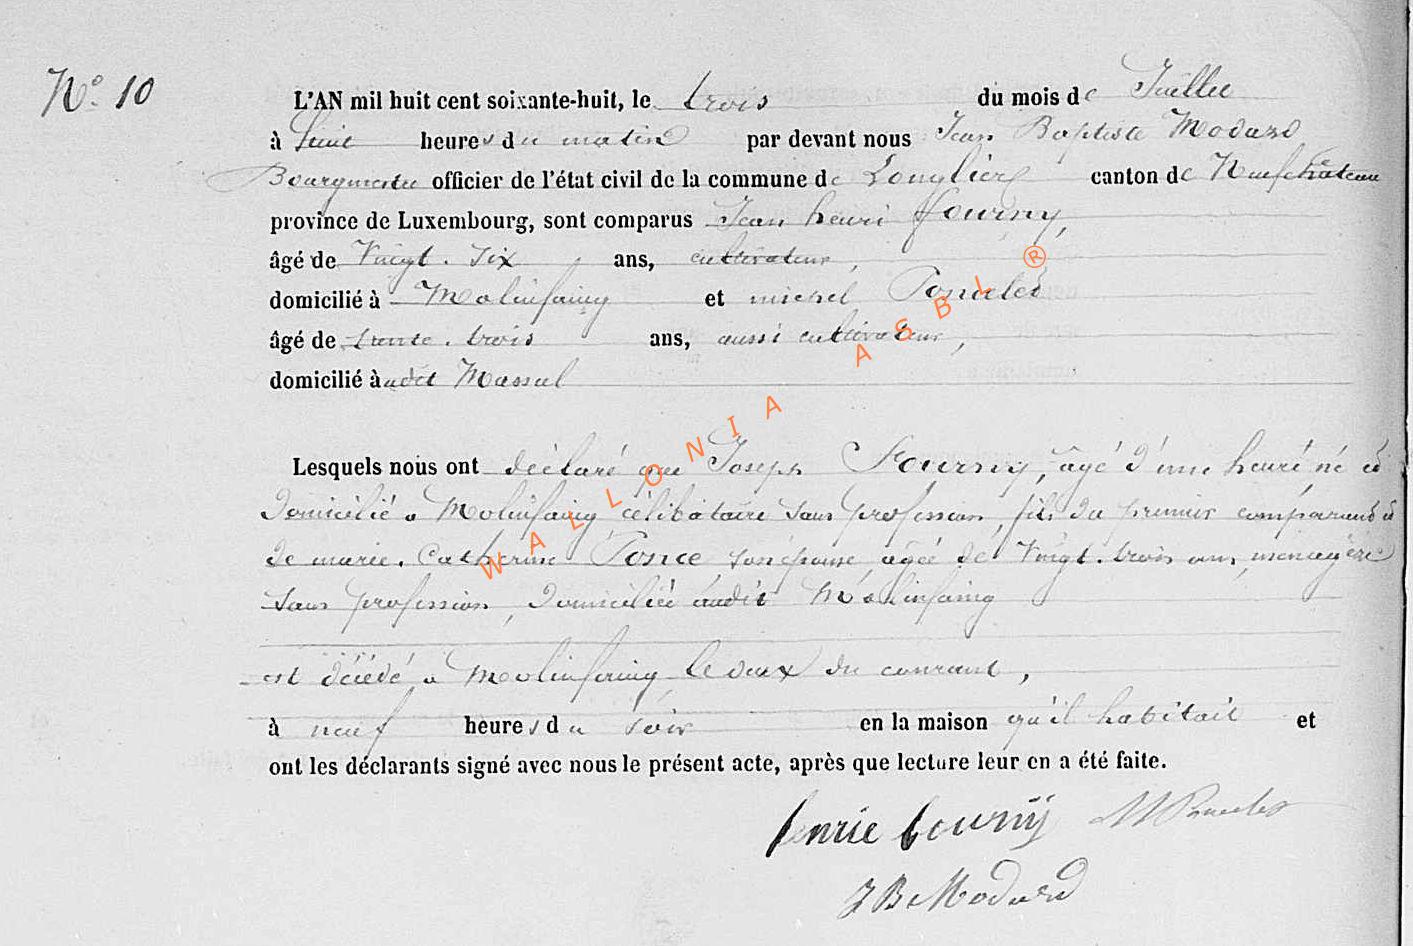 N° 10
L'AN mil huit cent soixante-huit, le trois du mois de Juillet
à huit heures du matin par devant nous Jean Baptiste Modard
Bourgmestre officier de l'état civil de la commune de Longlier canton de Neufchâteau
province de Luxembourg, sont comparus Jean henri fourny,
âgé de Vingt. Six ans, cultivateur,
domicilié à Molinfaing et michel Poncelet
âgé de trente. trois ans, aussi cultivateur,
domicilié à Massul
Lesquels nous ont déclaré que Joseph Fourny, âgé d'une heure né et
Domicilié à Molinfaing célibataire sans profession, fils du premier comparand et
de marie. Catherine Ponce son épouse, agée de Vingt. trois ans, menagère
sans profession, Domiciliée audit Molinfaing
est décédé à Molinfaing le deux du courant,
à neuf heures du soir en la maison qu'il habitait et
ont les déclarants signé avec nous le présent acte, après que lecture leur en a été faite.
henrie fourny M Poncelet
J B Modard
WALLONIA ASBL ®